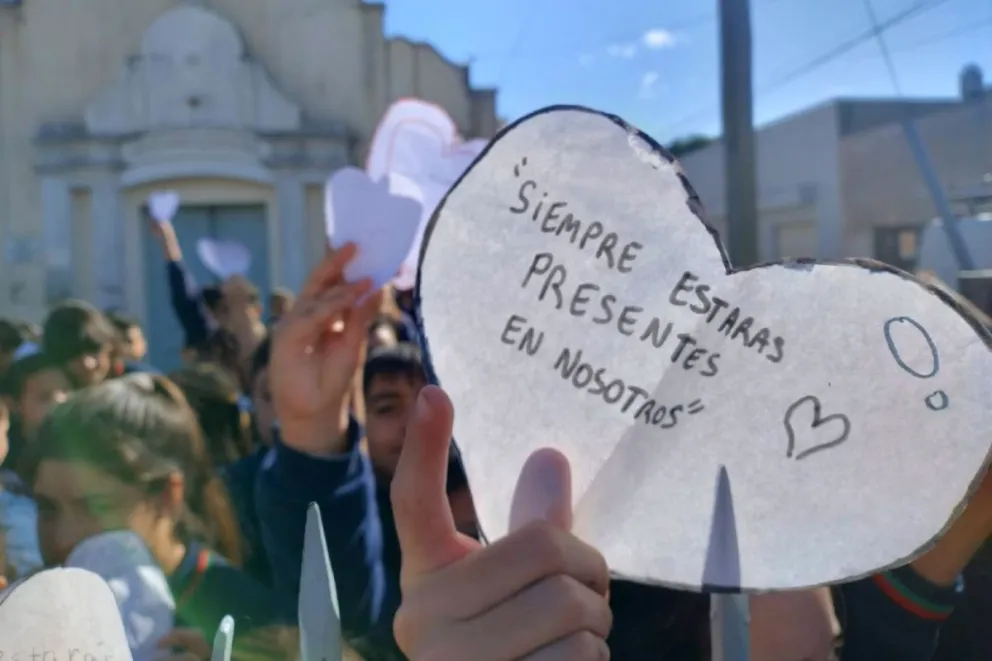 "SiEMPRE ESTARAS
PRESENTES
EN NOSOTROS"